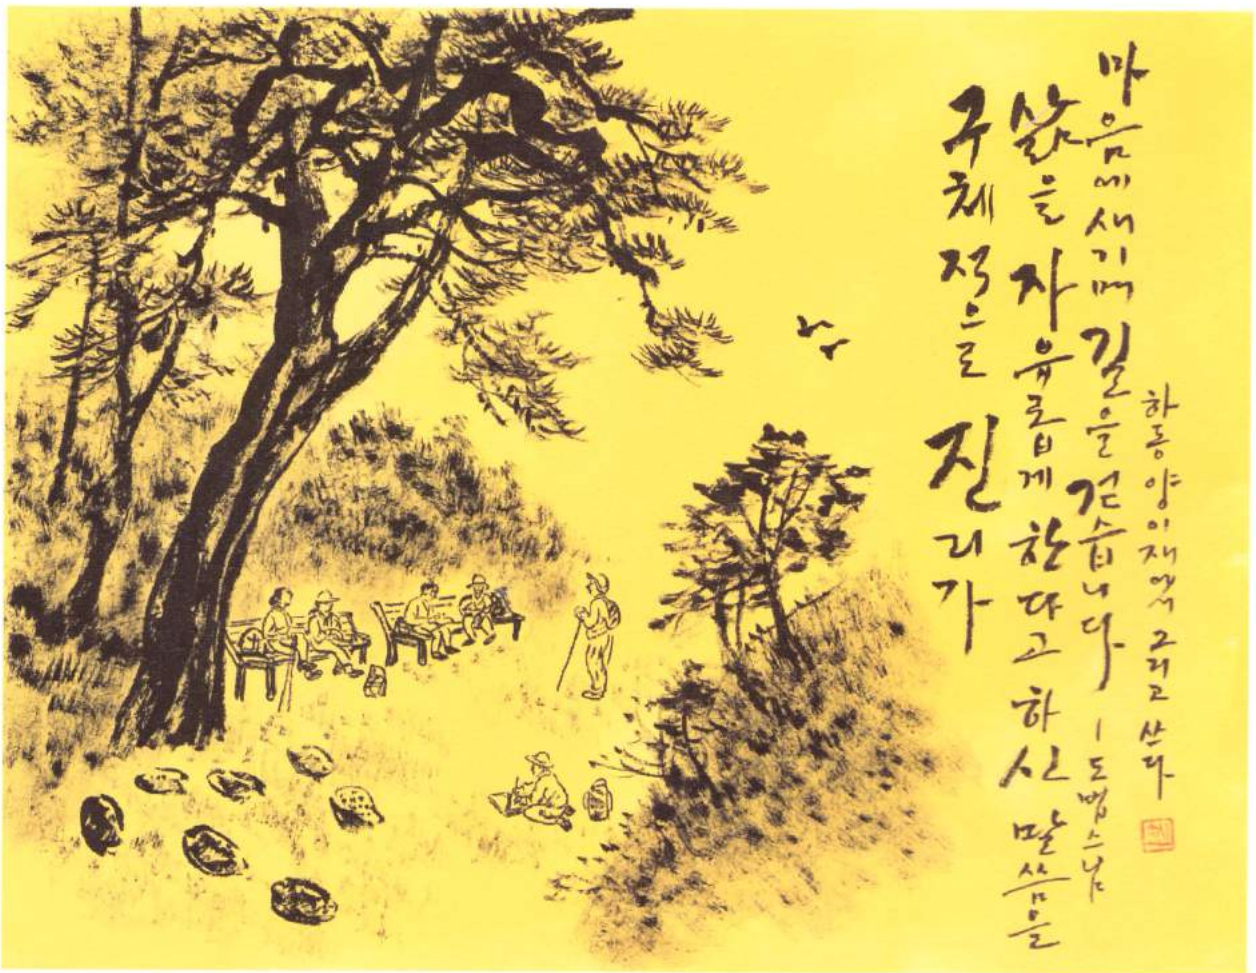 구체적으로 진리가
삶을 자유롭게 한다고 하신 말씀을
마음에 새기며 길을 걷습니다 - 도법스님
하동 양이재에서 그리고 쓰다